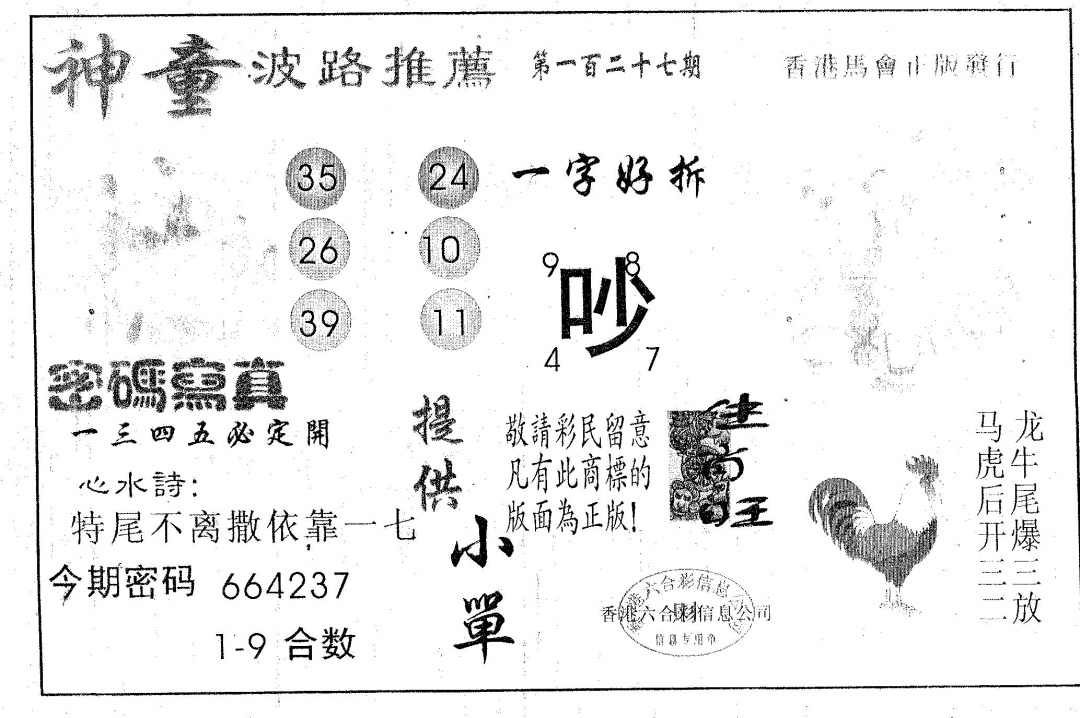 神童波路推薦 第一百二十七期 香港馬會正版發行
35 24 一字好拆
26 10
39 11
9 8
吵
4 7
密碼寫真
一三四五必定開
心水詩:
特尾不离撒依靠一七
今期密码 664237
1-9 合数
提供
小單
敬請彩民留意
凡有此商標的
版面為正版!
香港六合彩信息公司
信息专用章
龙牛尾爆三放
马虎后开三二